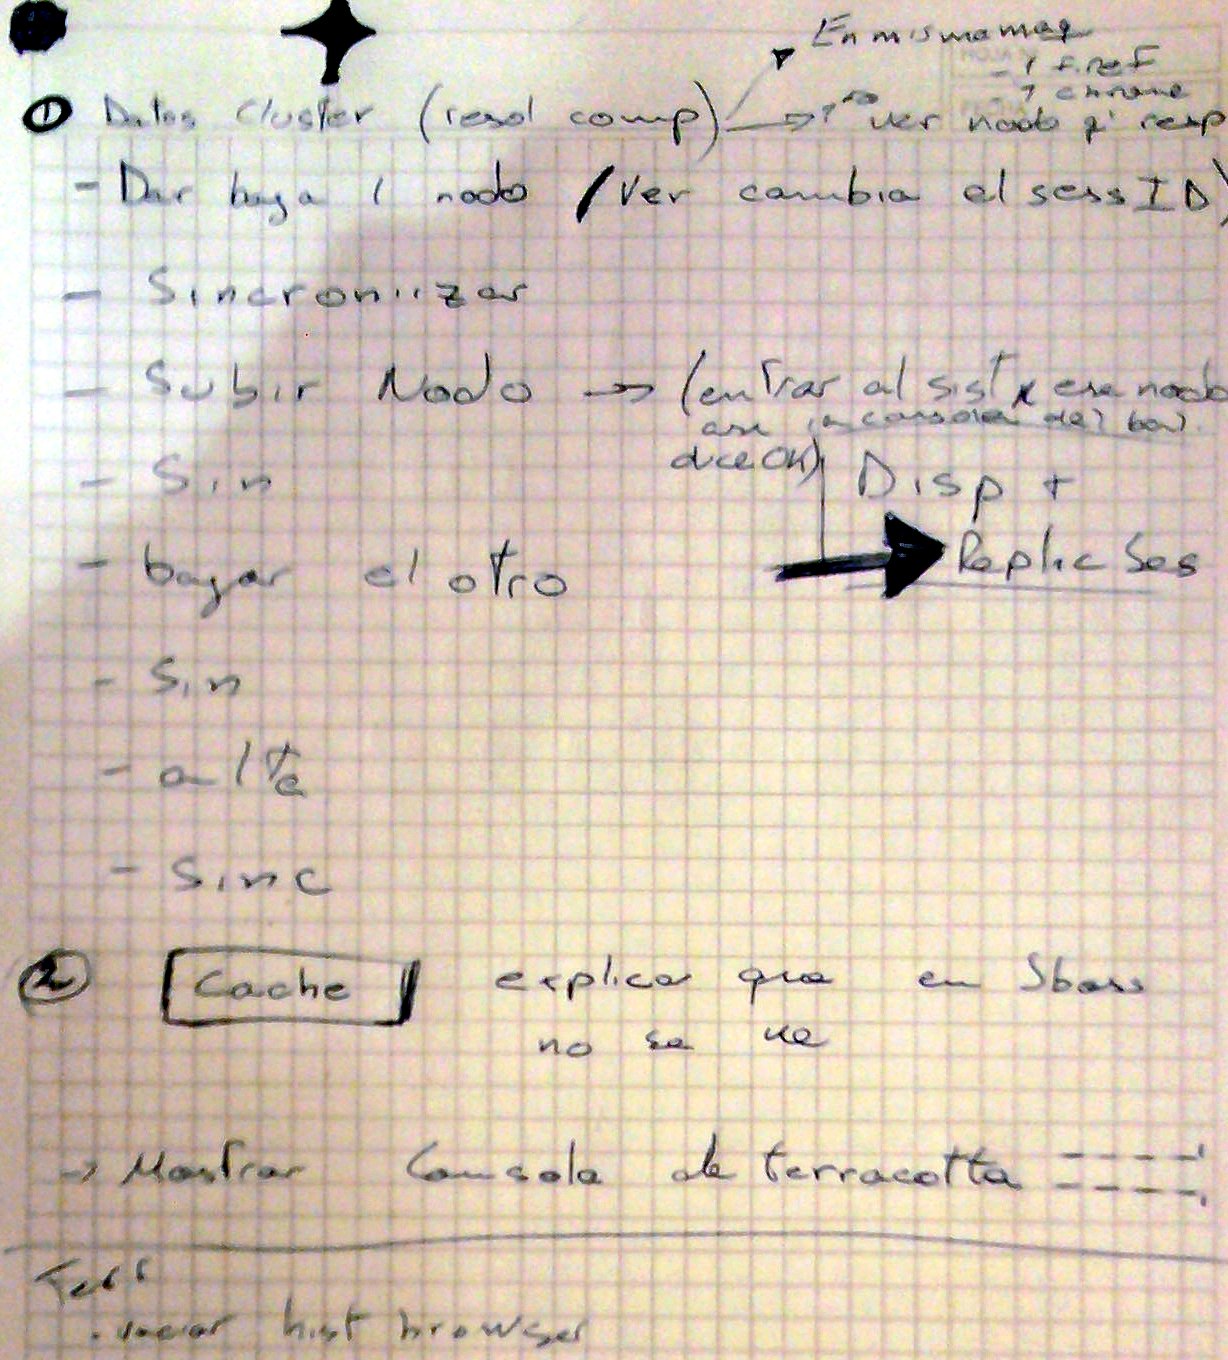 En misma maq
- 1 firef
- 1 chrome
① Datos Cluster (resol comp) → ver nodo q' resp
- Dar baja 1 nodo (Ver cambia el sess ID)
- Sincroniizar
- Subir Nodo → (entrar al sist x ese nodo
consola del
dice OK)
- Sin
Disp +
Replic Ses
- bajar el otro
- Sin
- alta
- Sinc
② Cache explicar que en Jboss
no se ve
→ Mostrar Consola de terracotta
Test
. vaciar hist browser